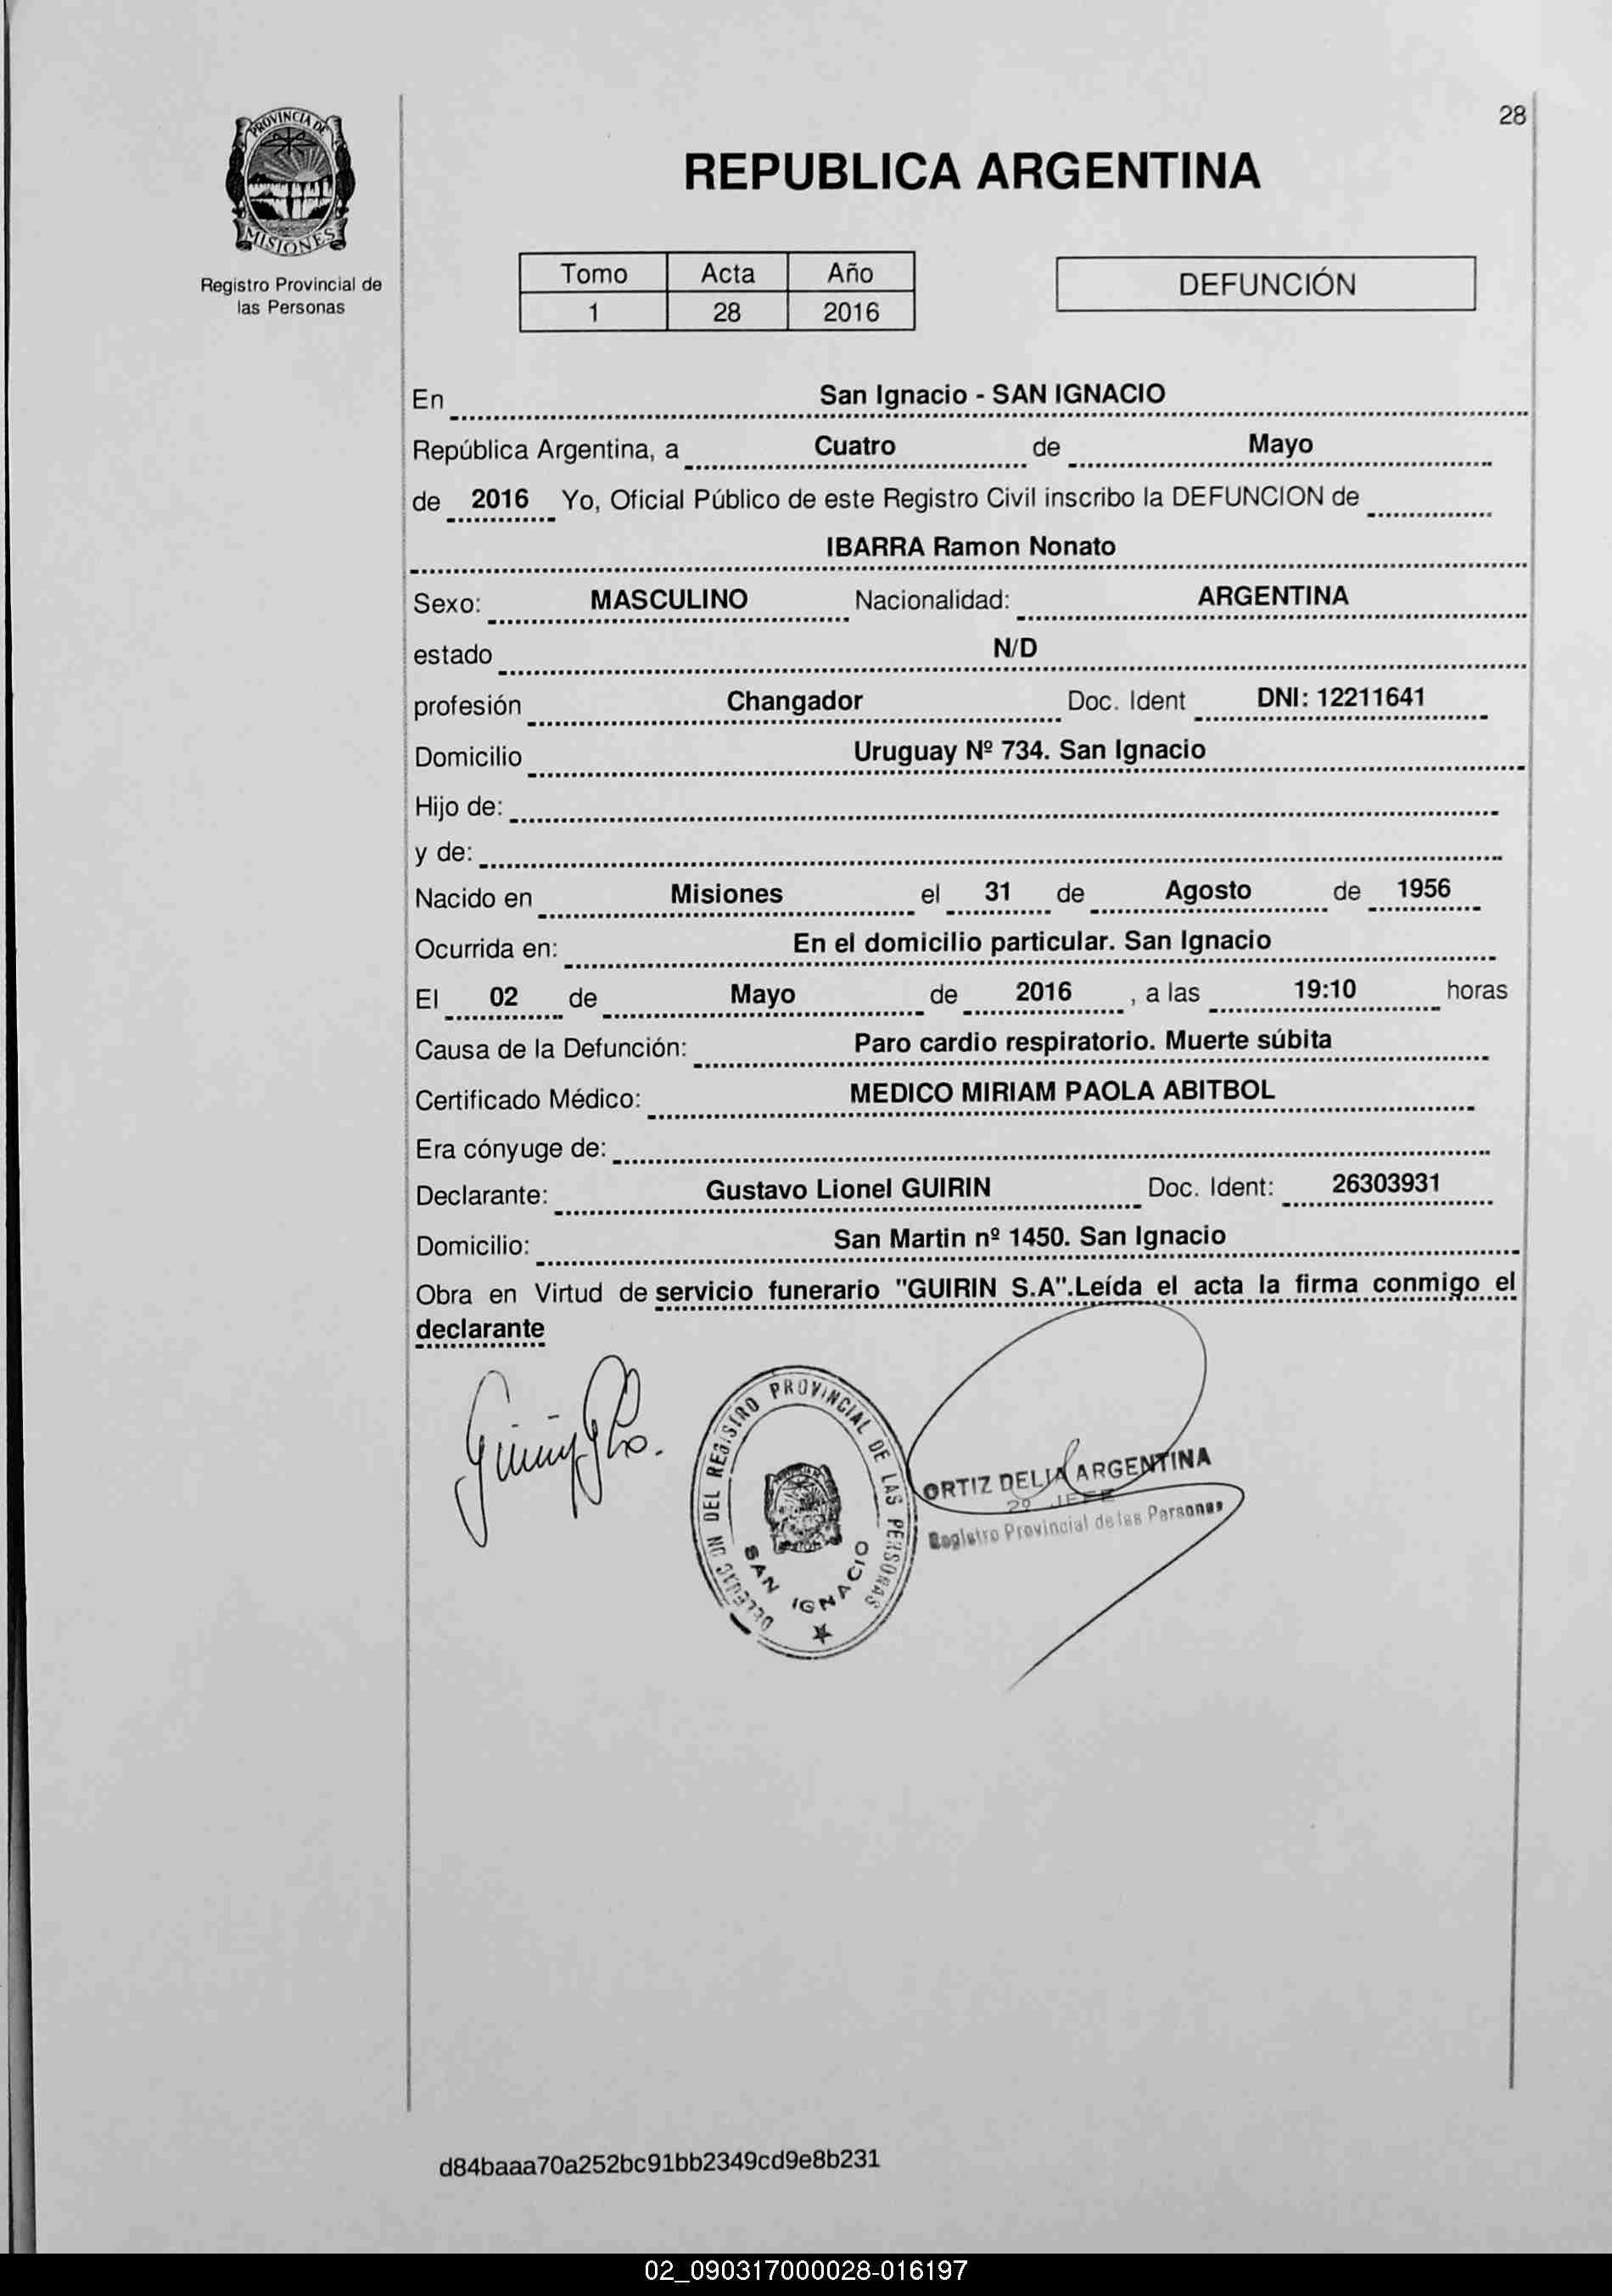 28
PROVINCIA DE
MISIONES
Registro Provincial de
las Personas
REPUBLICA ARGENTINA
Tomo Acta Año
1 28 2016
DEFUNCIÓN
En San Ignacio - SAN IGNACIO
República Argentina, a Cuatro de Mayo
de 2016 Yo, Oficial Público de este Registro Civil inscribo la DEFUNCION de
IBARRA Ramon Nonato
Sexo: MASCULINO Nacionalidad: ARGENTINA
estado N/D
profesión Changador Doc. Ident DNI: 12211641
Domicilio Uruguay Nº 734. San Ignacio
Hijo de:
y de:
Nacido en Misiones el 31 de Agosto de 1956
Ocurrida en: En el domicilio particular. San Ignacio
El 02 de Mayo de 2016 , a las 19:10 horas
Causa de la Defunción: Paro cardio respiratorio. Muerte súbita
Certificado Médico: MEDICO MIRIAM PAOLA ABITBOL
Era cónyuge de:
Declarante: Gustavo Lionel GUIRIN Doc. Ident: 26303931
Domicilio: San Martin nº 1450. San Ignacio
Obra en Virtud de servicio funerario "GUIRIN S.A".Leída el acta la firma conmigo el
declarante
DEL REGISTRO PROVINCIAL DE LAS PERSONAS
SAN IGNACIO
ORTIZ DELIA ARGENTINA
2º JEFE
Registro Provincial de las Personas
d84baaa70a252bc91bb2349cd9e8b231
02_090317000028-016197